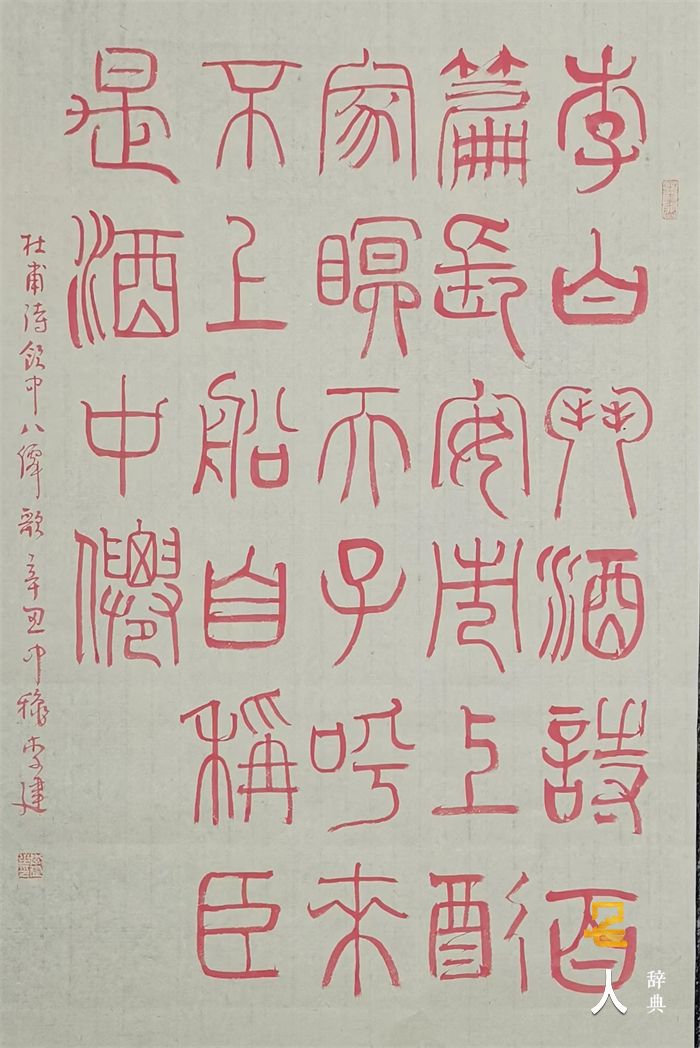 李白鬥酒詩百
篇長安市上酒
家瞑天子呼來
不上船自稱臣
是酒中僊
杜甫詩飲中八僊歌 辛丑中穐李建
名人辞典